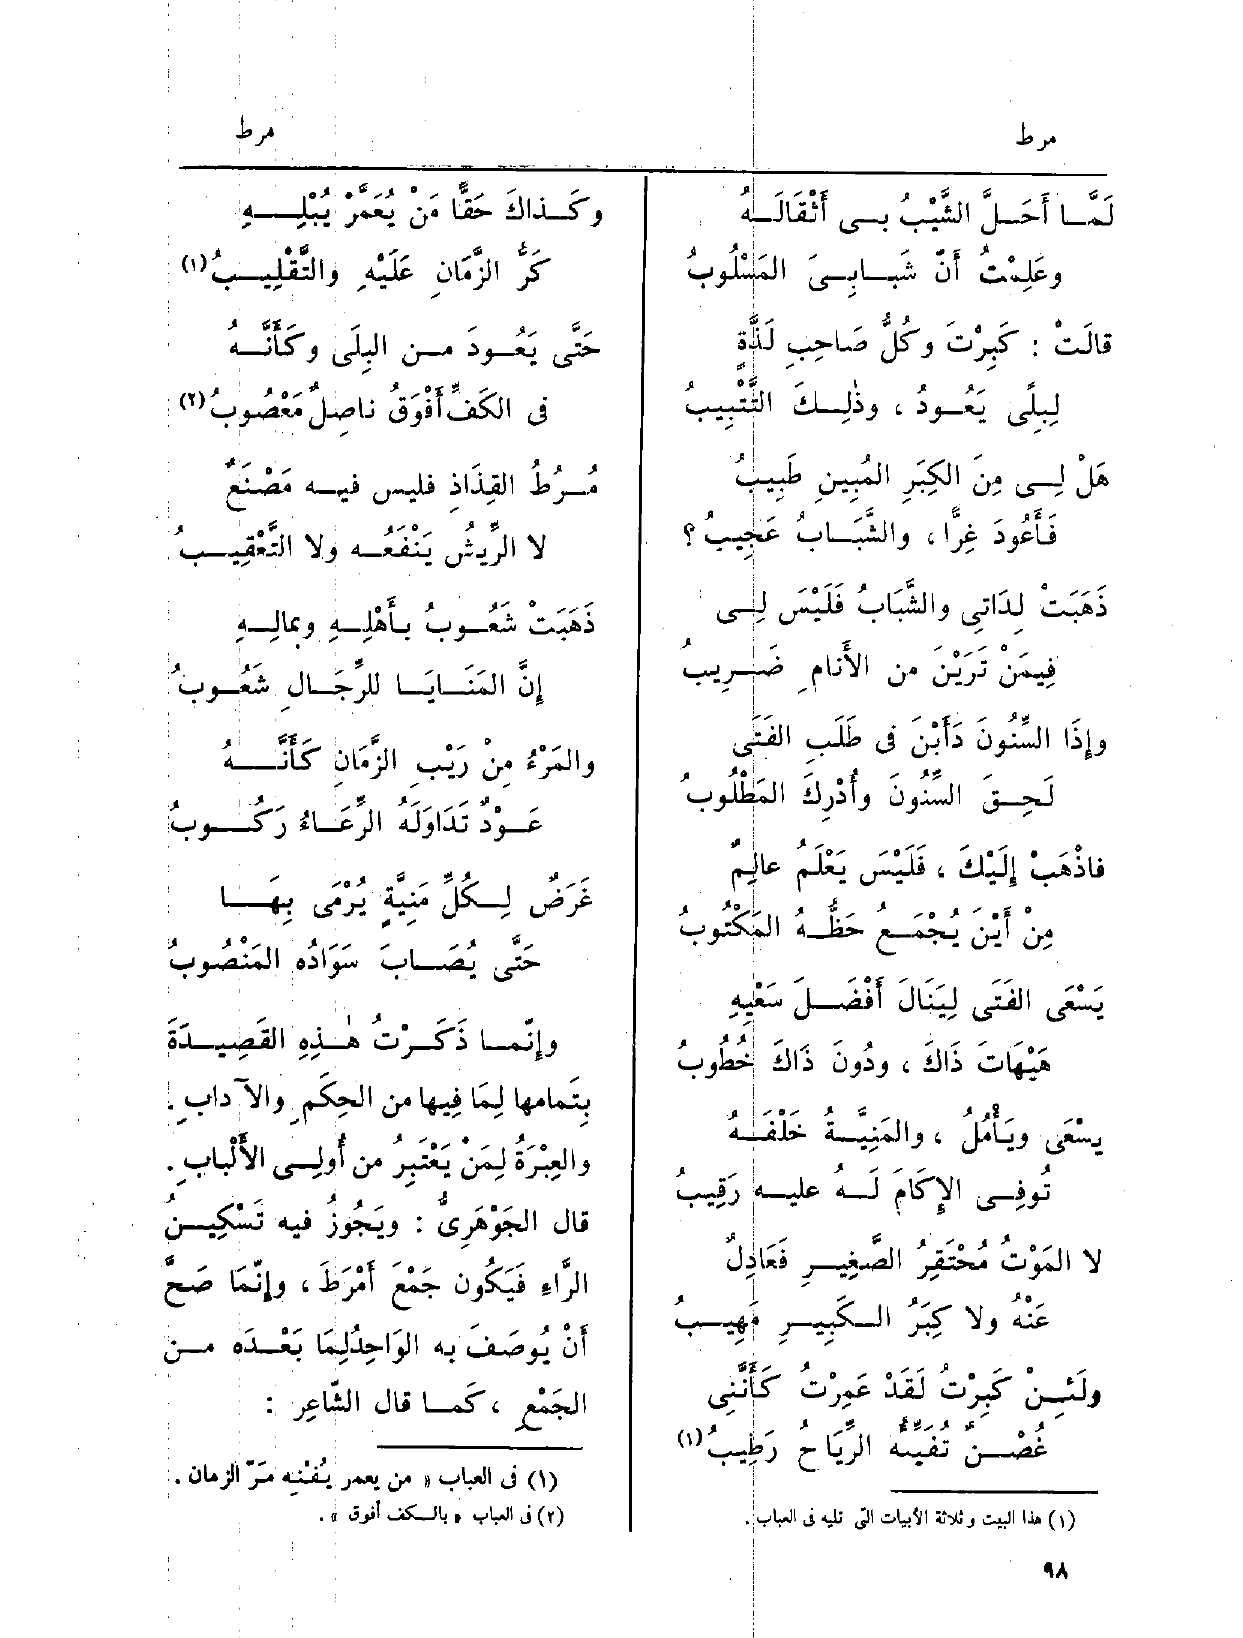 مرط
مرط
لَمَّا أَحَلَّ الشَّيْبُ بى أَثْقَالَهُ
وعَلِمْتُ أَنَّ شَبابِىَ المَسْلُوبُ
قالَتْ : كَبِرْتَ وكُلُّ صَاحِبِ لَذَّةٍ
لِبِلًى يَعُودُ ، وذٰلِكَ التَّتْبِيبُ
هَلْ لِى مِنَ الكِبَرِ المُبِينِ طَبِيبُ
فَأَعُودَ غِرًّا ، والشَّبَابُ عَجِيبُ ؟
ذَهَبَتْ لِدَاتِى والشَّبَابُ فَلَيْسَ لِى
فِيمَنْ تَرَيْنَ من الأَنامِ ضَرِيبُ
وإِذَا السِّنُونَ دَأَبْنَ فى طَلَبِ الفَتَى
لَحِقَ السِّنُونَ وأُدْرِكَ المَطْلُوبُ
فاذْهَبْ إِلَيْكَ ، فَلَيْسَ يَعْلَمُ عالِمٌ
مِنْ أَيْنَ يُجْمَعُ حَظُّهُ المَكْتُوبُ
يَسْعَى الفَتَى لِيَنَالَ أَفْضَلَ سَعْيِهِ
هَيْهَاتَ ذَاكَ ، ودُونَ ذَاكَ خُطُوبُ
يسْعَى ويَأْمُلُ ، والمَنِيَّةُ خَلْفَهُ
تُوفِى الإِكَامَ لَهُ عليه رَقِيبُ
لا المَوْتُ مُحْتَقِرُ الصَّغِيرِ فَعَادِلٌ
عَنْهُ ولا كِبَرُ الكَبِيرِ مَهِيبُ
ولَئِنْ كَبِرْتُ لَقَدْ عَمِرْتُ كَأَنَّنِى
غُصْنٌ تُفَيِّئُه الرِّيَاحُ رَطِيبُ(١)
(١) هذا البيت وثلاثة الأبيات التى تليه فى العباب.
٩٨
وكَذاكَ حَقًّا مَنْ يُعَمَّرْ يُبْلِهِ
كَرُّ الزَّمَانِ عَلَيْهِ والتَّقْلِيبُ(١)
حَتَّى يَعُودَ من البِلَى وكَأَنَّهُ
فى الكَفِّ أَفْوَقُ ناصِلٌ مَعْصُوبُ(٢)
مُرُطُ القِذَاذِ فليس فيه مَصْنَعٌ
لا الرِّيشُ يَنْفَعُه ولا التَّعْقِيبُ
ذَهَبَتْ شَعُوبُ بأَهْلِهِ وبمالِهِ
إِنَّ المَنَايَا للرِّجَالِ شَعُوبُ
والمَرْءُ مِنْ رَيْبِ الزَّمَانِ كَأَنَّهُ
عَوْدٌ تَدَاوَلَهُ الرِّعَاءُ رَكُوبُ
غَرَضٌ لِكُلِّ مَنِيَّةٍ يُرْمَى بِهَا
حَتَّى يُصَابَ سَوَادُه المَنْصُوبُ
وإِنَّما ذَكَرْتُ هٰذِهِ القَصِيدَةَ
بِتَمامها لِمَا فِيها من الحِكَمِ والآدابِ.
والعِبْرَةُ لِمَنْ يَعْتَبِرُ من أُولِى الأَلْبابِ.
قال الجَوْهَرِىُّ : ويَجُوزُ فيه تَسْكِينُ
الرَّاءِ فَيَكُون جَمْعَ أَمْرَطَ ، وإِنَّمَا صَحَّ
أَنْ يُوصَفَ به الوَاحِدُ لِمَا بَعْدَه من
الجَمْعِ ، كَما قال الشّاعِر :
(١) فى العباب « من يعمر يُفْنِه مَرّ الزمان .
(٢) فى العباب « بالكف أفوق » .